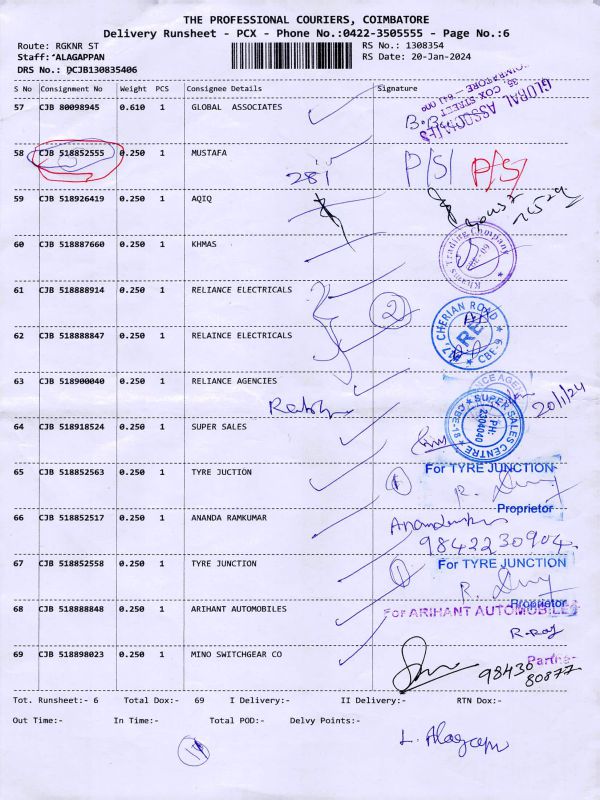 THE PROFESSIONAL COURIERS, COIMBATORE
Delivery Runsheet - PCX - Phone No.:0422-3505555 - Page No.:6
Route: RGKNR ST RS No.: 1308354
Staff:ˆALAGAPPAN RS Date: 20-Jan-2024
DRS No.: DCJB130835406
S No Consignment No Weight PCS Consignee Details Signature
57 CJB 80098945 0.610 1 GLOBAL ASSOCIATES
GLOBAL ASSOCIATES
COX STREET
58 CJB 518852555 0.250 1 MUSTAFA P/S/ P/S/
281
59 CJB 518926419 0.250 1 AQIQ
60 CJB 518887660 0.250 1 KHMAS
Khams Trading Company
61 CJB 518888914 0.250 1 RELIANCE ELECTRICALS
2
62 CJB 518888847 0.250 1 RELAINCE ELECTRICALS
CHERIAN ROAD
RE
CBE-6
63 CJB 518900040 0.250 1 RELIANCE AGENCIES
20/1/24
64 CJB 518918524 0.250 1 SUPER SALES
SUPER SALES CENTRE
CBE-18
PH:
2304040
65 CJB 518852563 0.250 1 TYRE JUCTION
1 For TYRE JUNCTION
Proprietor
66 CJB 518852517 0.250 1 ANANDA RAMKUMAR
9842230904
67 CJB 518852558 0.250 1 TYRE JUNCTION
1 For TYRE JUNCTION
Proprietor
68 CJB 518888848 0.250 1 ARIHANT AUTOMOBILES
For ARIHANT AUTOMOBILES
R.raj
Partner
69 CJB 518898023 0.250 1 MINO SWITCHGEAR CO
98430
80877
Tot. Runsheet:- 6 Total Dox:- 69 I Delivery:- II Delivery:- RTN Dox:-
Out Time:- In Time:- Total POD:- Delvy Points:-
11 L. Alagap